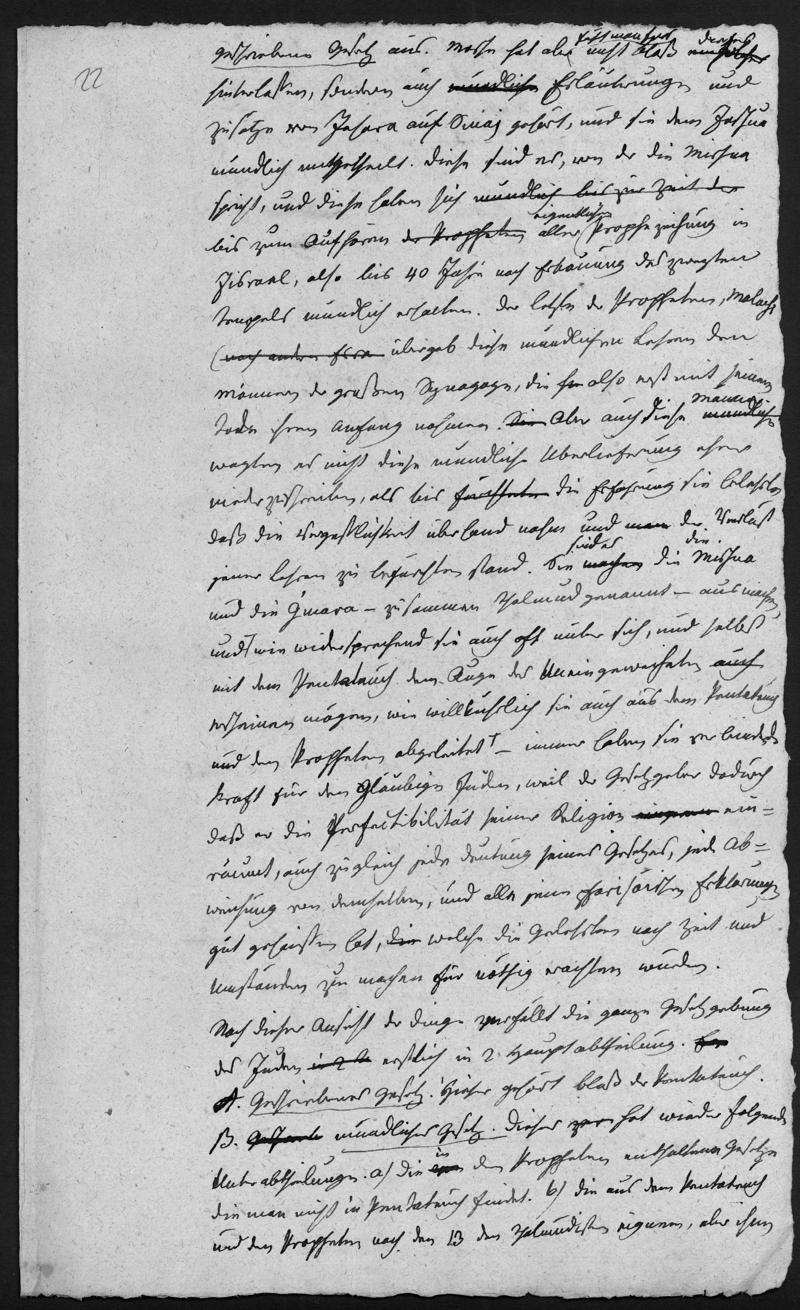 22
geschriebene Gesetz aus. Mosse hat aber nicht blaß dieses
hinterlaßen, sondern auch mündliche Erläuterungen und
zusätze von Jehova auf Sinaj gehört, und sie dem Josua
mündlich mitgetheilt. Diese sind es, von der die Misna
spricht, und diese haben sich mündlich bis zur Zeit der
bis zum Aufhören der Propheten aller eigentlichen Prophezeihung in
Jisrael, also bis 40 Jahre nach Erbauung des zweyten
Tempels mündlich erhalten. Der letzte der Propheten, Malachi
übergab diese mündlichen Lehren den
Männern der großen Synagoge, die also erst mit seinem
Tode ihren Anfang nahmen. Sie Aber auch diese Männer
wagten es nicht diese mündliche Überlieferung eher
niederzuschreiben, als bis die Erfahrung sie belehrte
daß die Vergeßlichkeit überhand nahm und man der Verlust
jener Lehren zu befürchten stand. Sie machen die Misna
und die Gmara – zusammen Thalmud genannt – ausmachen,
und wie widersprechend sie auch oft unter sich, und selbst
mit dem Pentateuch dem Auge des Uneingeweihten auch
erscheinen mögen, wie willkührlich sie auch aus dem Pentateuch
und den Propheten abgeleitet – immer haben sie verbindende
Kraft für den Gläubigen Juden, weil der Gesetzgeber dadurch
daß er die Perfectibilität seiner Religion ein=
räumt, auch zugleich jede Deutung seines Gesetzes, jede Ab=
weichung von demselben, und alle jene pharisäischen Erklärungen
gut geheißen hat, die welche die Gelehrten nach Zeit und
Umständen zu machen für nöthig erachten würden.
Nach dieser Ansicht der Dinge zerfällt die ganze Gesetzgebung
der Juden in 2 erstlich in 2 Hauptabtheilung.
A. Geschriebenes Gesetz. Hieher gehört blaß der Pentateuch.
B. mündliches Gesetz. Dieses hat wieder folgende
Unterabtheilungen. a) die in den Propheten enthaltenen Gesetze
die man nicht in Pentateuch findet. b) die aus dem Pentateuch
und den Propheten nach den 13 den Thalmudisten eigenen, aber ihnen